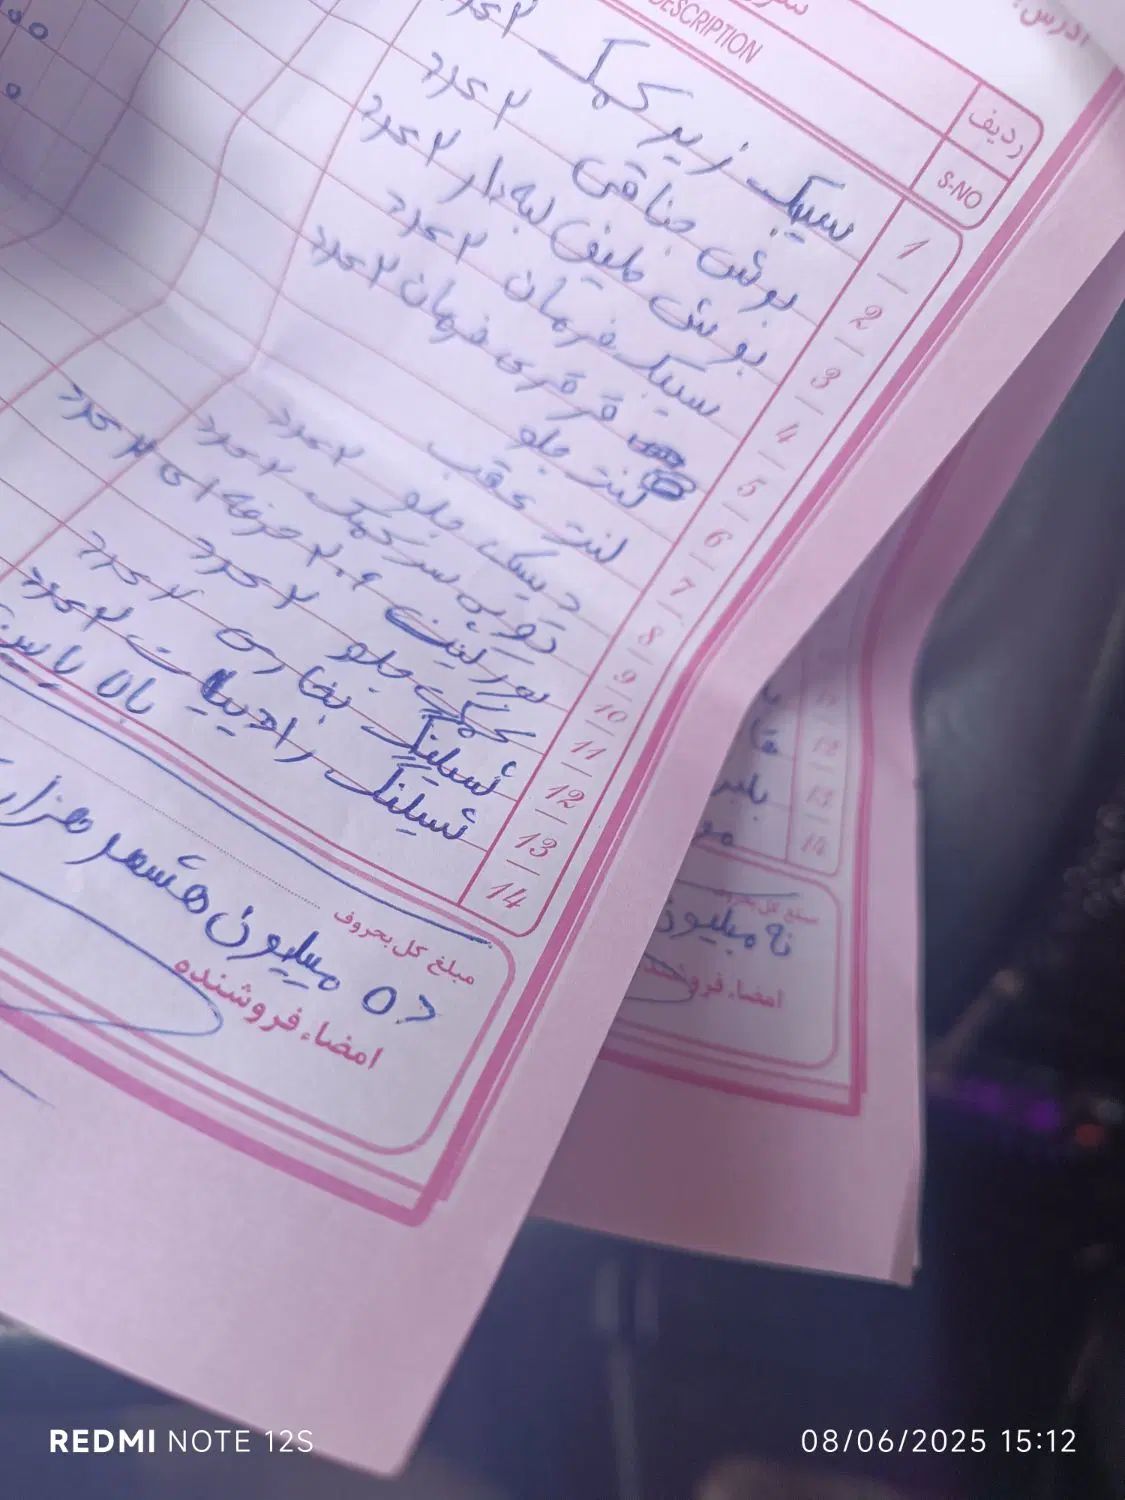 آدرس:
DESCRIPTION
ردیف
S-NO
1 سیبک زیر کمک ۲ عدد
2 بوش جناقی ۲ عدد
3 بوش طبق لبه‌دار ۲ عدد
4 سیبک فرمان ۲ عدد
5 قرقری فرمان ۲ عدد
6 لنت جلو
7 لنت عقب
8 دیسک جلو ۲ عدد
9 توپی سر کمک ۲ عدد
10 بورلیت ۲۰۶ حرفه‌ای ۲ عدد
11 کمک جلو ۲ عدد
12 شیلنگ بخاری ۲ عدد
13 شیلنگ رادیات ۲ عدد
14 بالا پایین
مبلغ کل بحروف
ده میلیون هشصد هزار
امضاء فروشنده
12
13
14
مبلغ کل بحروف
نه میلیون
امضاء فروشنده
REDMI NOTE 12S
08/06/2025 15:12